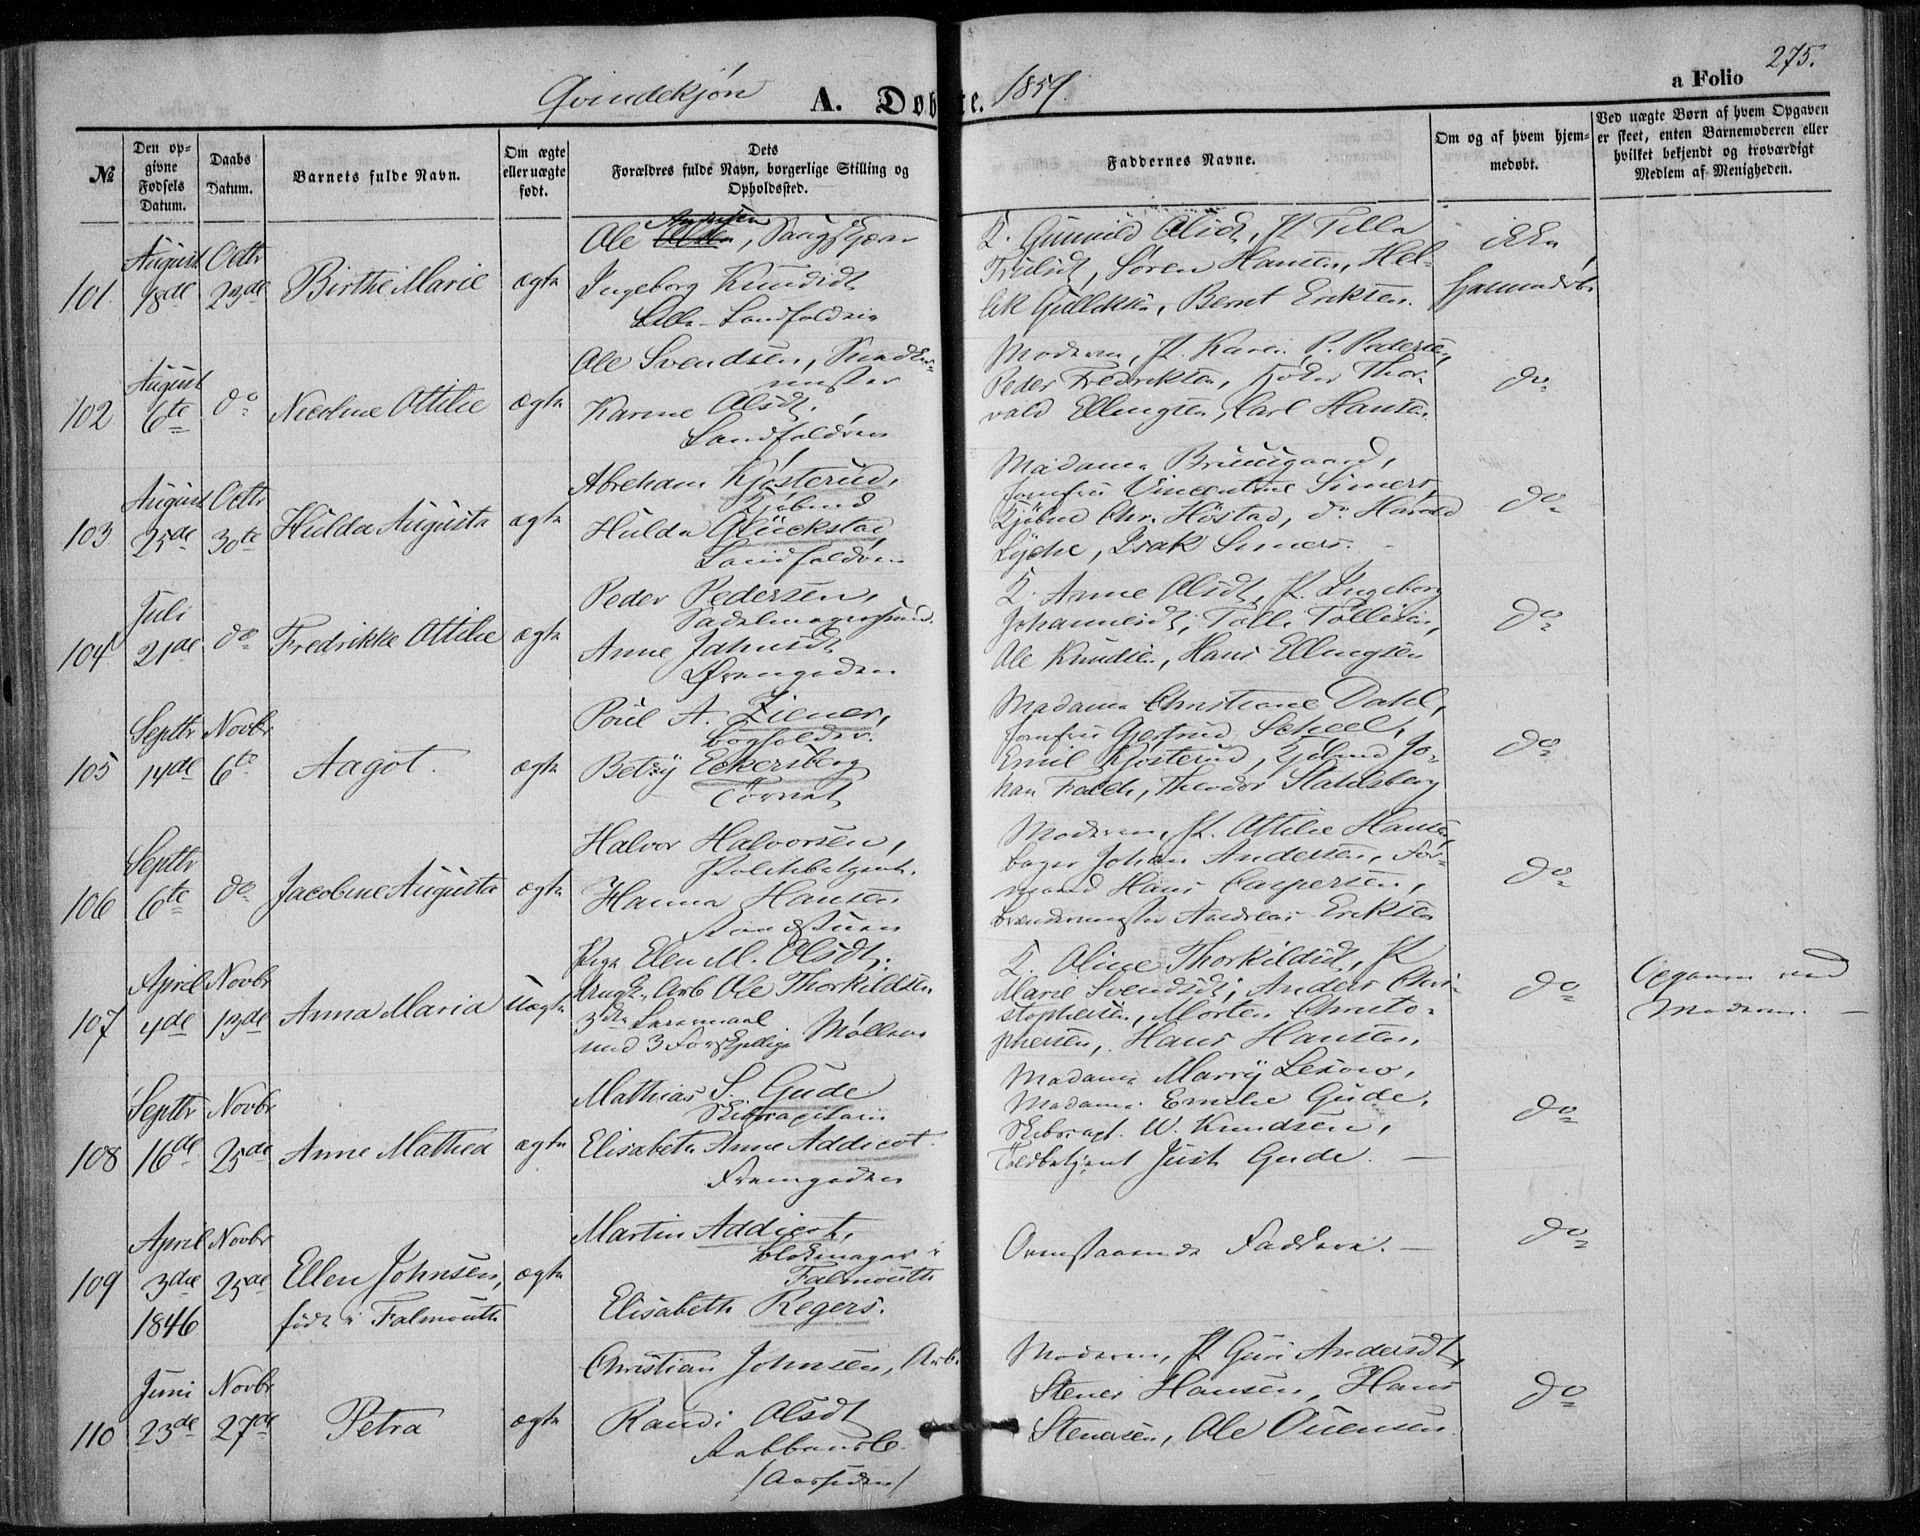 275.
Qvindekjøn A. Døbte. 1859. a Folio
№
Den opgivne Fødsels Datum.
Daabs Datum.
Barnets fulde Navn.
Om ægte eller uægte født.
Dets Forældres fulde Navn, borgerlige Stilling og Opholdssted.
Faddernes Navne.
Om og af hvem hjemmedøbt.
Ved uægte Børn af hvem Opgaven er skeet, enten Barnemoderen eller hvilket bekjendt og troværdigt Medlem af Menigheden.
101
August 18de
Octbr 23de
Birthe Marie
ægte
Ole Andersen,
Ingeborg Knudsdt
K. Gunnild Olsdt, P.
Søren Hansen, Hel-
lik Gulliksen, Bernt Eriksen.
ikke
hjemmedøbt
102
August 6te
do
Nicoline Ottilie
ægte
Ole Svendsen,
Karine Olsdt.
Moderen, P. Karen P. Pedersen,
Peder Fredriksen, Thor-
vald Ellingsen, Carl Hansen
do
103
August 25de
Octbr 30te
Hulda Augusta
ægte
Abraham Kjøsterud,
Kjøbmd
Hulda Glückstad,
Madame Bruusgaard,
Jomfru Vincentine Simers,
Kjøbmd Chr. Høstad, do Harald
Lyche, Isak Simers.
do
104
Juli 21de
do
Fredrikke Ottilie
ægte
Peder Pedersen,
Sadelmagersvend.
Anne Jahnsdt
K. Anne Olsdt, P. Ingeborg
Johannesdt, Tollef Tollefsen,
Ole Knudsen, Hans Ellingsen
do
105
Septbr 14de
Novbr 6te
Aagot.
ægte
Poul A. Ziener,
bogholder.
Betzy Eckersberg
Torvet
Madame Christiane Dahl,
Jomfru Gjertrud Scheel,
Emil Kjøsterud, Kjøbmd Jo-
han Falch, Theodor Stahlsberg
do
106
Septbr 6te
do
Jacobine Augusta
ægte
Halvor Halvorsen,
Politibetjent.
Hanna Hansen
Moderen, P. Ottilie Hansen,
bager Johan Andersen, For-
mand Hans Caspersen,
Andreas Eriksen
do
107
April 4de
Novbr 13de
Anna Maria
Uægte
Pige Elen M. Olsdt.
Ungk. Arb Ole Thorkildsen
3die Leiermaal
med 3 Forskjellige. Møllen
K. Oline Thorkildsdt, P
Marie Svendsdt, Anders Chri-
stophersen, Morten Christo-
phersen, Hans Hansen.
do
Opgaven ved
Moderen. —
108
Septbr 16de
Novbr 25de
Anne Mathea
ægte
Mathias S. Gude
Skibscapitain
Elisabeth Anne Addicot.
Madame Marry Lexow,
Madame Emilie Gude,
Skibscapt. W. Knudsen,
Toldbetjent Just Gude. —
do
109
April 3die 1846
Novbr 25de
Ellen Johnsen,
født i Falmouth
ægte
Martin Addicot,
blokmager i
Falmouth
Elisabeth Regers.
Ovenstaaende Faddere. —
do
110
Juni 23de
Novbr 27de
Petra
ægte
Christian Johnsen, Arb.
Randi Olsdt
Moderen, P Guri Andersdt,
Stener Hansen, Hans
Stenersen, Ole Ouensen.
do